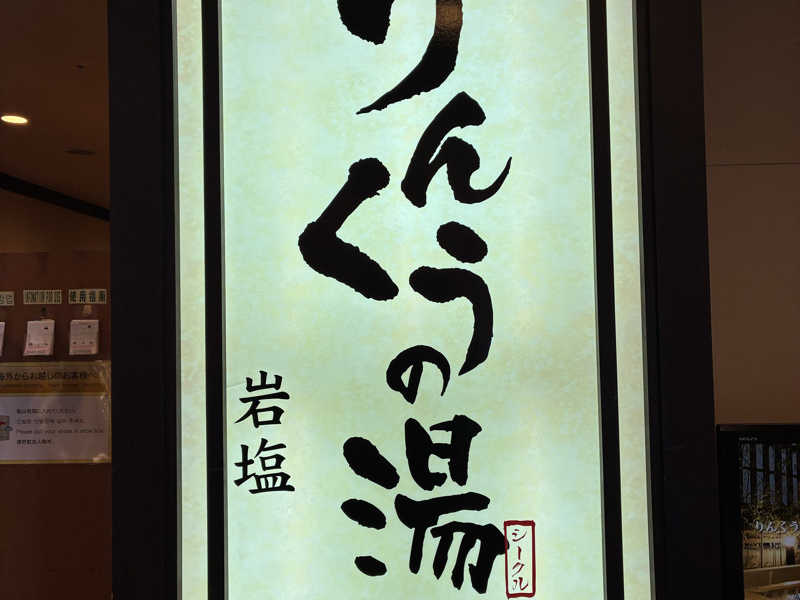 りんくうの湯
岩塩
シークル
INFORMATION FOR USE
使用指南
海外からお越しのお客様へ
Please put your shoes in shoe box.
りんくう